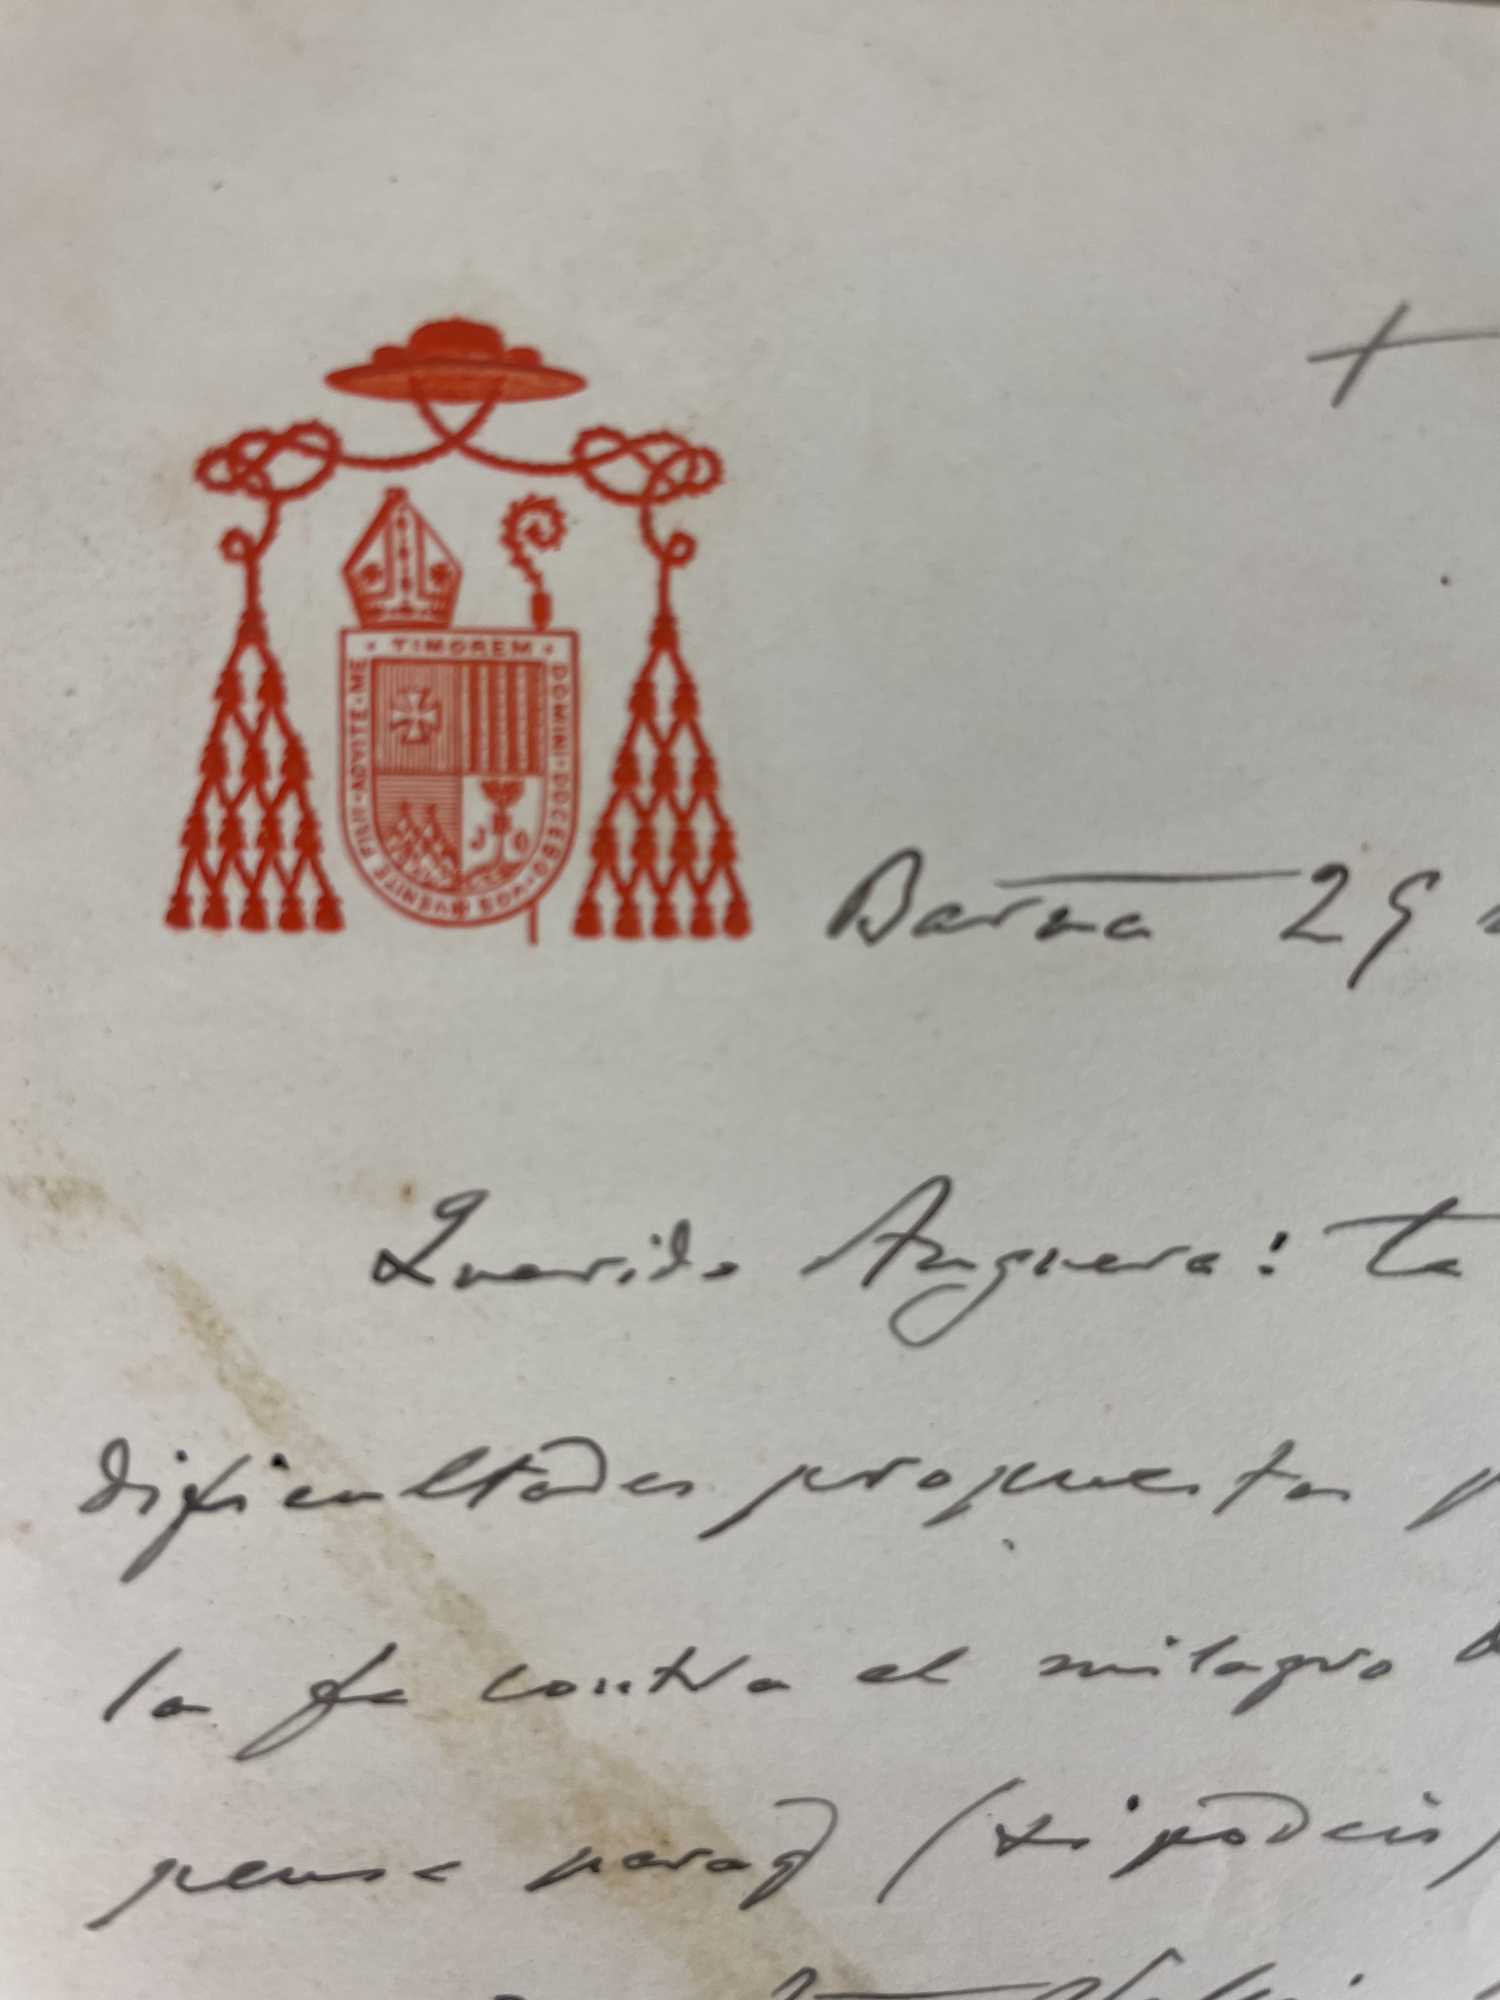 +
· TIMOREM · DOMINI · DOCEBO · VOS · VENITE FILII · AUDITE · ME
J O
Barna 29
Querido Anguera: ta
dificultades propuestas p
la fe contra el milagro
pense parag (si podeis)